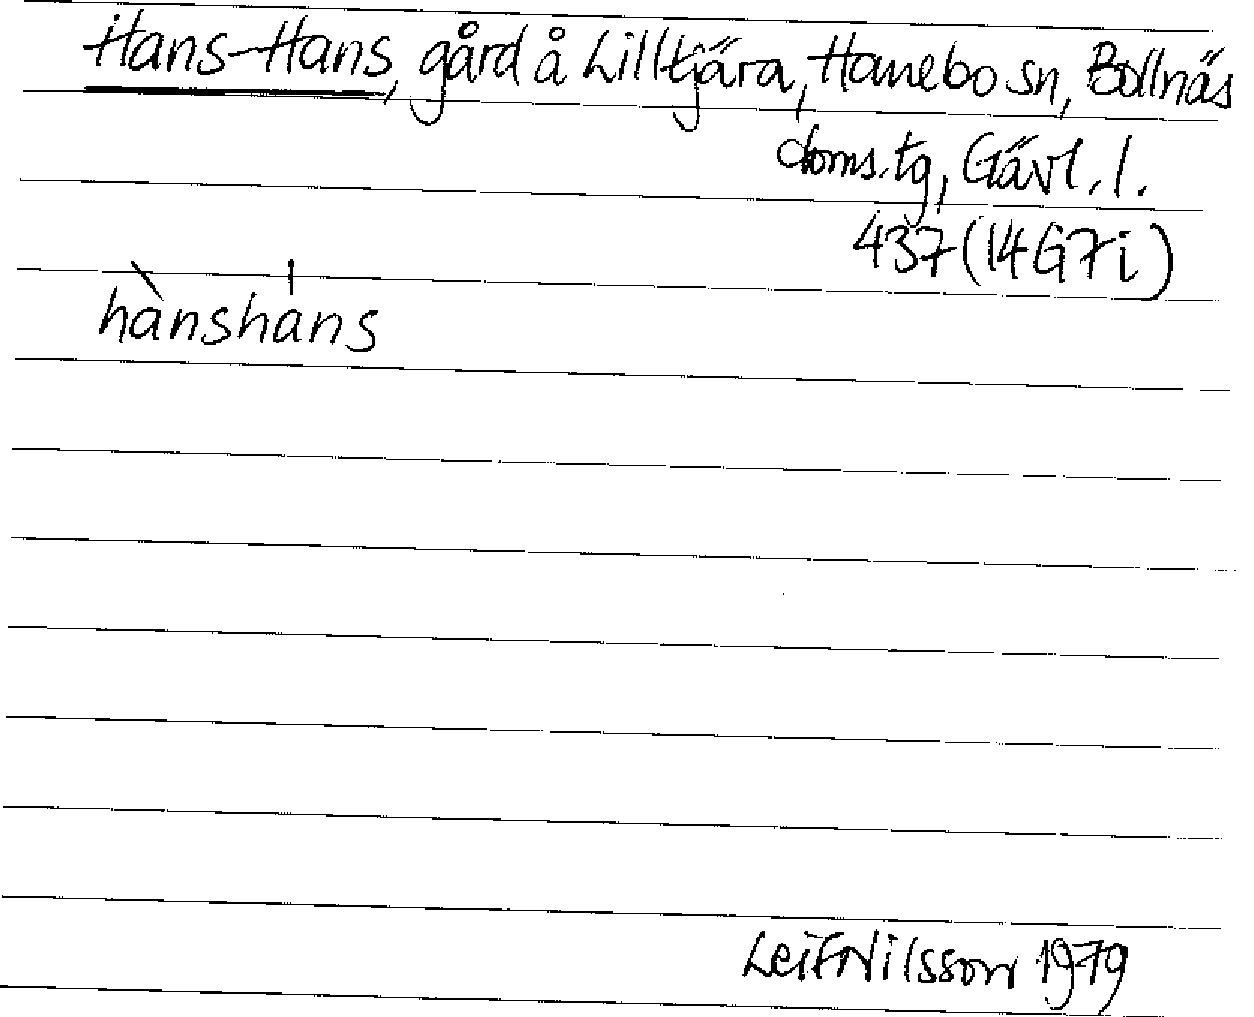 Hans-Hans, gård å Lilltjära, Hanebo sn, Bollnäs
doms.tg, Gävl.l.
437 (14G7i)
hànsháns
Leif Nilsson 1979